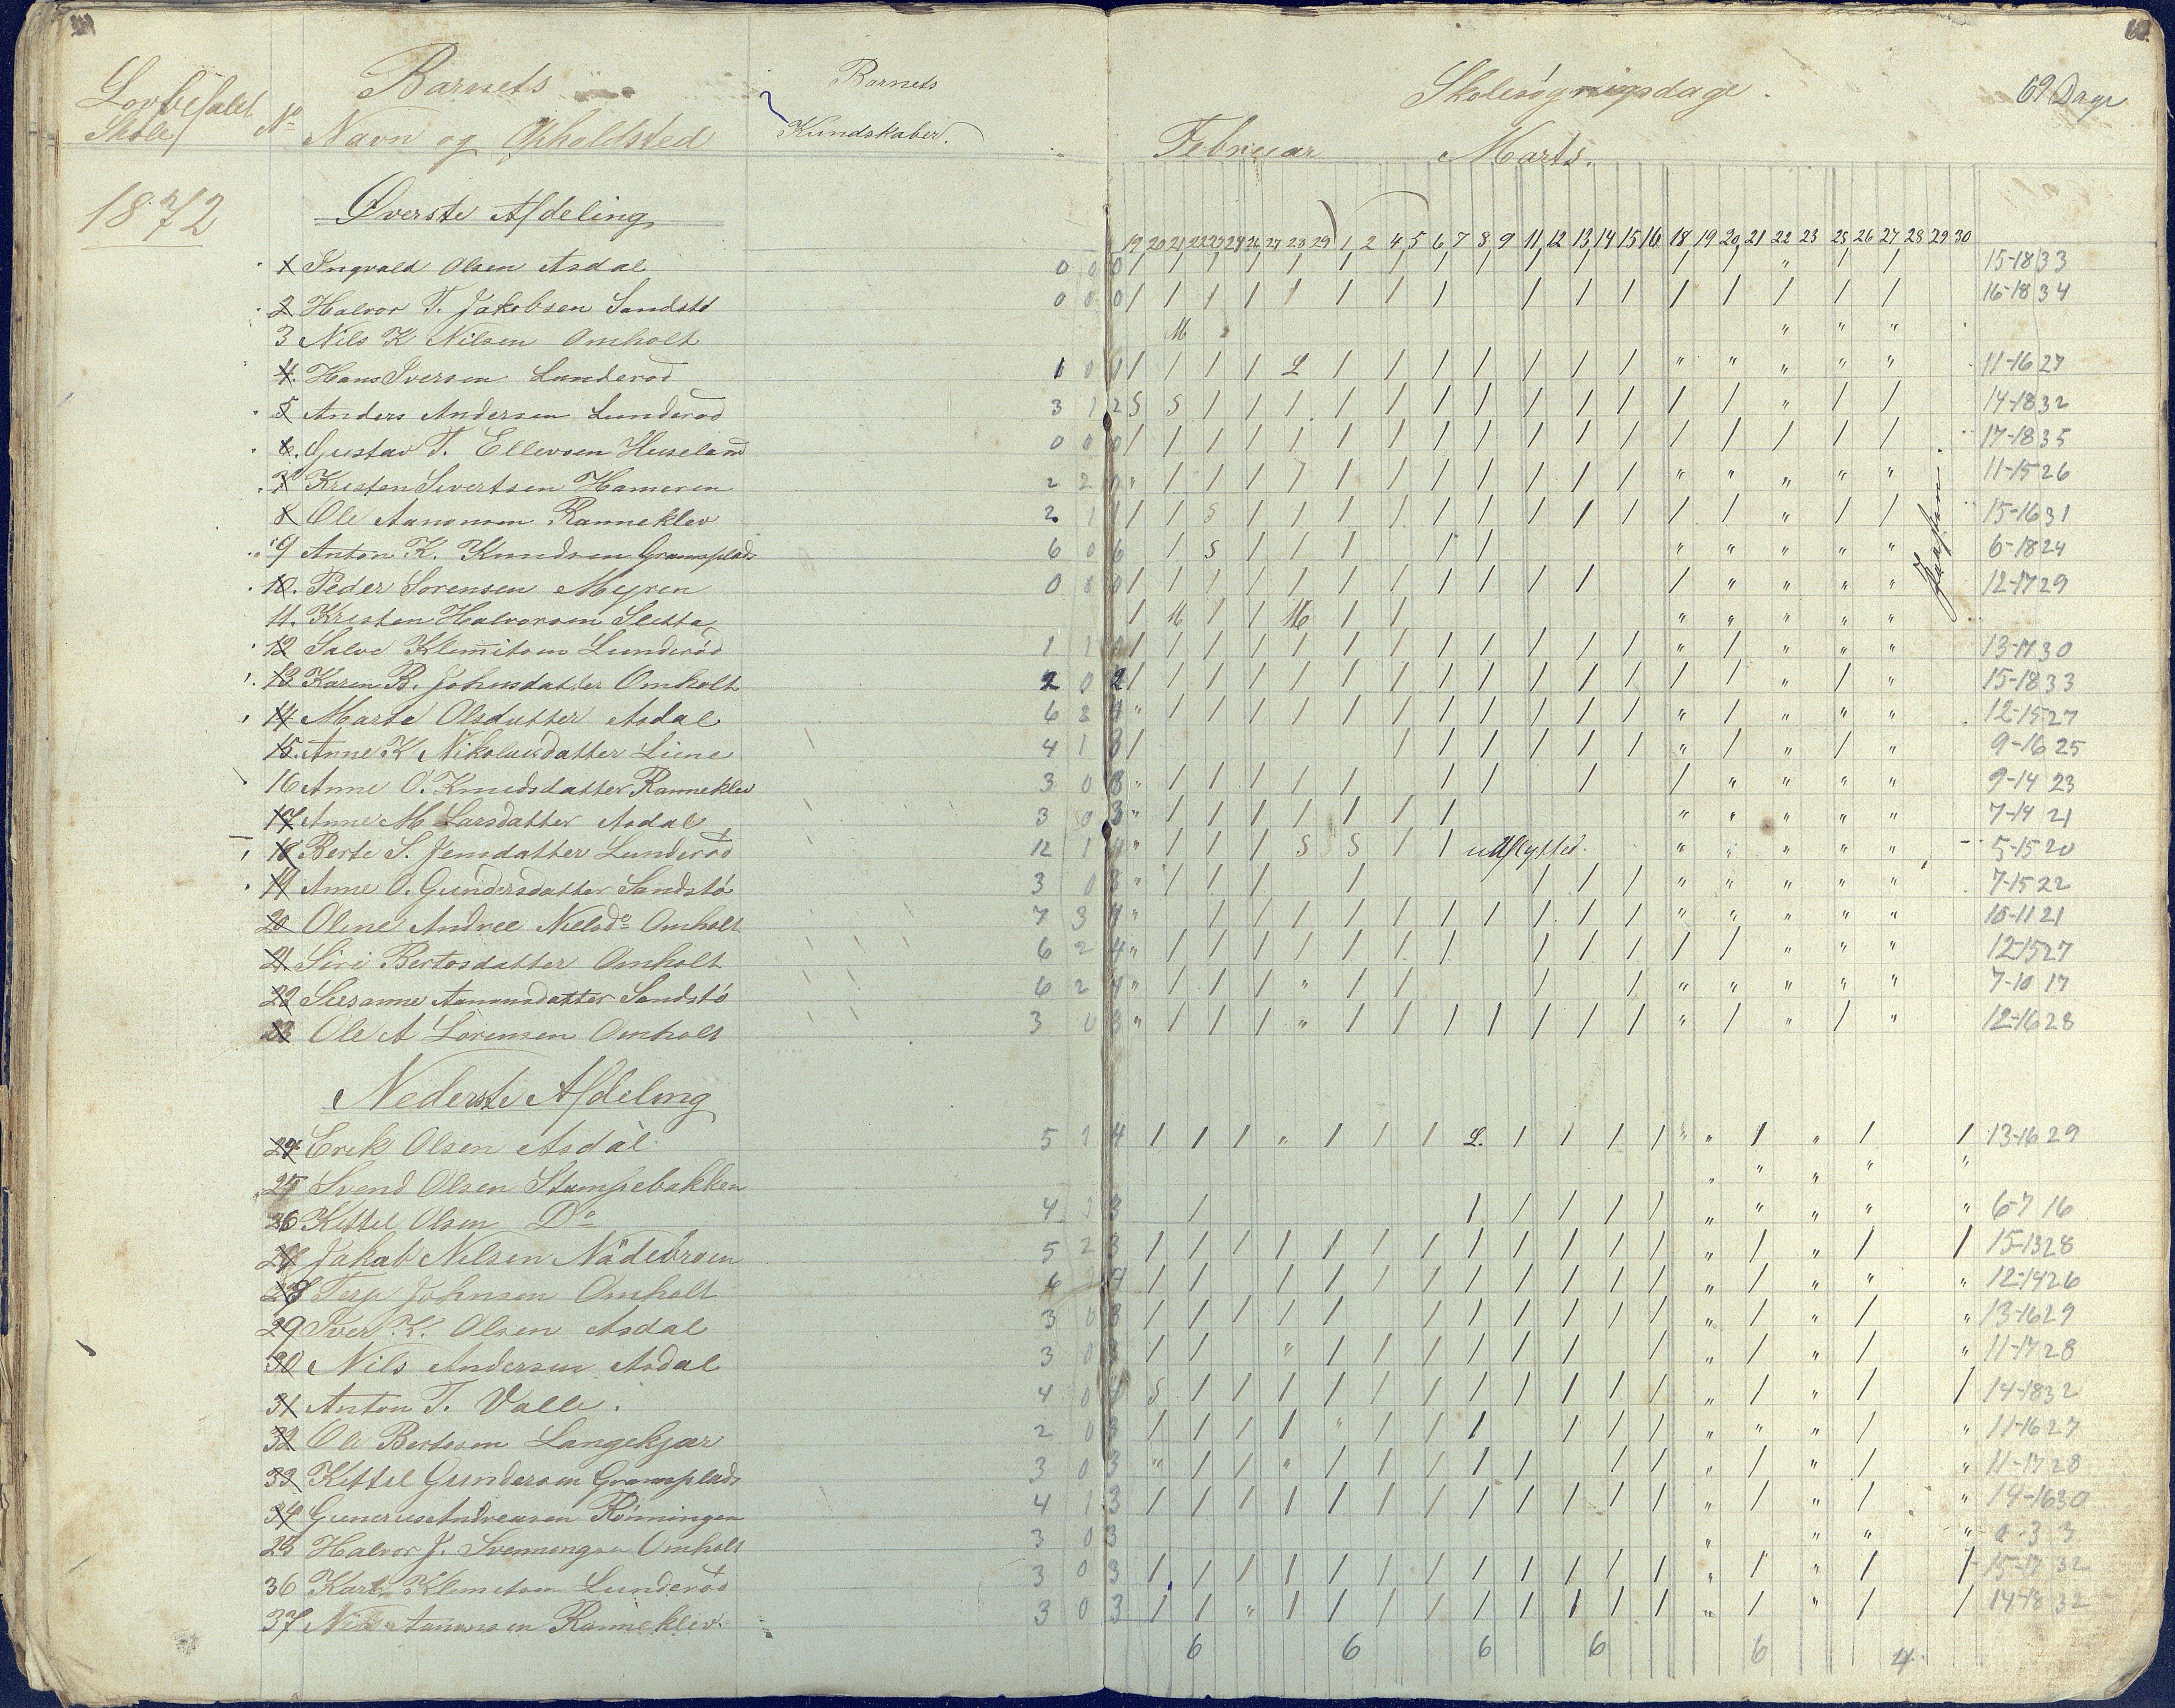 Lovbefalet Skole
No
Barnets
Navn og Opholdsted
Barnets
Kundskaber.
Skolesøgningsdage.
69 Dage
Februar
Marts.
1872
Øverste Afdeling
19 20 21 22 23 24 26 27 28 29 1 2 4 5 6 7 8 9 11 12 13 14 15 16 18 19 20 21 22 23 25 26 27 28 29 30
1 Ingvald Olsen Asdal 0 0 0 / / / / / / / / / / / / / " / / 15-18 33
2 Halvor T. Jakobsen Sandstø 0 0 0 / / / / / / / / / / / / / / / / 16-18 34
3 Nils K Nilsen Omholt M " " "
4. Hans Iversen Lunderød 1 0 / / / / L / / / / / / / " " " " " 11-16 27
5 Anders Andersen Lunderød 3 1 2 S S / / / / / / / / / / / / " / / 14-18 32
6. Gustav T. Ellevsen Huseland 0 0 0 / / / / / / / / / / / / / / / / / 17-18 35
7 Kristen Sivertsen Hameren 2 2 0 " / / / / / / / / / / / " " " " " 11-15 26
8 Ole Aanonsen Ranneklev 2 1 1 / / S / / / / / / / / / / / " / / 15-16 31
9 Anton K. Knudsen Gramsplads 6 0 6 / S / / / / / " " " " " 6-18 24
10. Peder Sorensen Myren 0 0 0 / / / / / / / / / / / / " " " " 12-17 29
11. Kristen Halvorsen Sletta / M / / M / / " " " " "
12 Salve Klemmitsen Lunderød 1 1 0 / / / / / / / / / / / / " / " " " 13-17 30
13 Karen B. Johnsdatter Omholt 2 0 2 / / / / / / / / / / / / / / " / " 15-18 33
14 Marte Olsdatter Asdal 6 2 4 " / / / / / / / / / / / " / " " " 12-15 27
15. Anne K Nikolaisdatter Liene 4 1 3 / / / / / / / " / " / " 9-16 25
16 Anne O. Knudsdatter Ranneklev 3 0 3 " / / / / / / / / / " " " " 9-14 23
17 Anne M Larsdatter Asdal 3 0 3 " / / / / / / / " " " " " 7-14 21
18 Berte S. Jensdatter Lunderød 12 1 " / / / S S / / udflyttet. " " " " " 5-15 20
19 Anne O. Gundersdatter Sandstø 3 0 3 " / / / / / / / " " " " " 7-15 22
20 Oline Andree Nielsdo Omholt 7 3 4 " / / / / / / / / / / " " " " " 10-11 21
21 Siri Bertosdatter Omholt 6 2 4 " / / / / / / / / / / / / " " " 12-15 27
22 Susanne Aanonsdatter Sandstø 6 2 4 " / / / " / / / / " " " " " 7-10 17
23 Ole A Lorensen Omholt 3 0 3 " / / / " / / / / / / / " / " / " 12-16 28
Nederste Afdeling
24 Erik Olsen Asdal 5 1 4 / / / " / / / L. / / / / " " / " / / 13-16 29
25 Svend Olsen Stampebakken " " " " "
26 Kittel Olsen Do 4 1 3 / / / / / / " " " " " 6-7 16
27 Jakob Nilsen Nådebroen 5 2 3 / / / / / / / / / / / / " / " / / 15-13 28
28 Terje Johnsen Omholt 6 2 4 / / / / / / / / / / / " / " " " 12-14 26
29 Iver K. Olsen Asdal 3 0 3 / / / / / / / / / / / " / " / " 13-16 29
30 Nils Andersen Asdal 3 0 3 / / " / / / / / / / " / " / " 11-17 28
31 Anton T. Valle. 4 0 4 S / / / / / / / / / / / " / " / / 14-18 32
32 Ole Bertosen Langekjær 2 0 / / / / " / / / / / / " " " / " 11-16 27
33 Kittel Gundersen Gramsplads 3 0 3 " / / " / / / / / / / " / " / " 11-17 28
34 Gunerius Andreasen Rønningen 4 1 3 / / / / / / / / / / / / " / " / " 14-16 30
35 Halvor J. Svenningsen Omholt 3 0 3 " " " " 0-3 3
36 Karl Klemetsen Lunderød 3 0 3 / / / / / / / / / / / / " / " / / 15-17 32
37 Nils Aanonsen Ranneklev 3 0 3 / / " / / / / / / / / / " / " / / 14-18 32
6 6 6 6 6 4